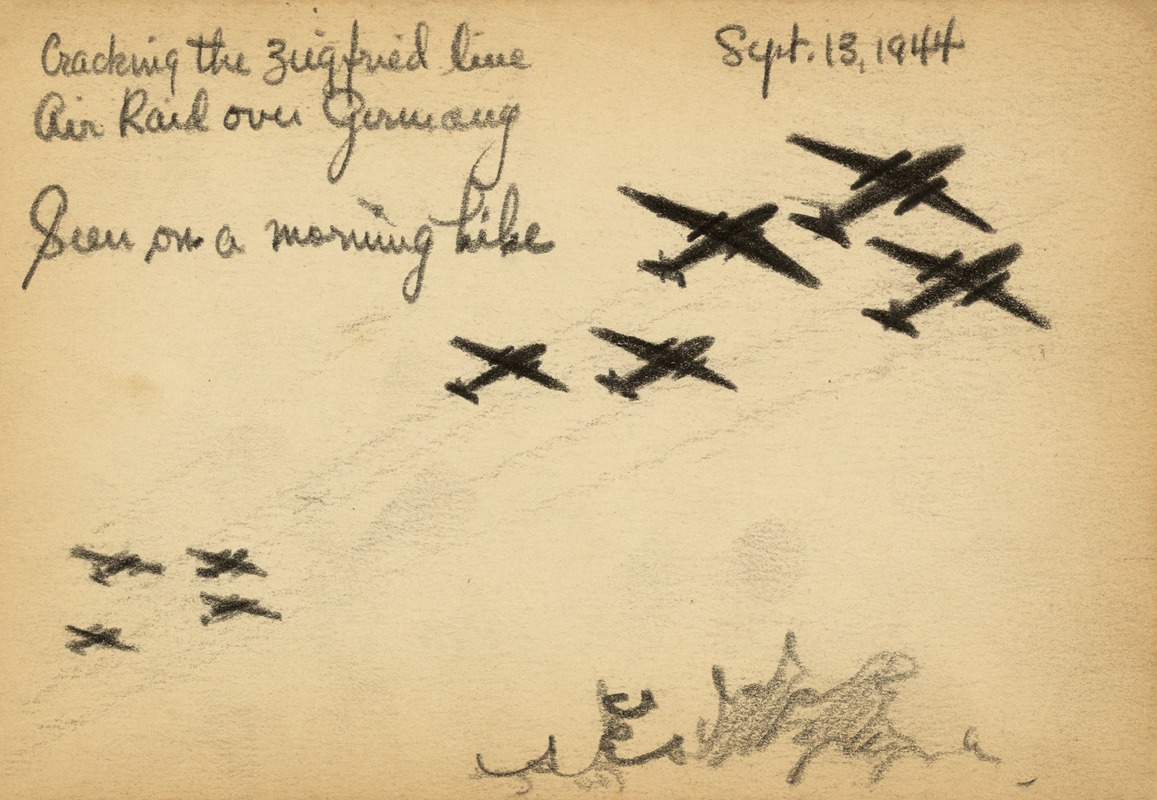 Cracking the Ziegfried line
Sept. 13, 1944
Air Raid over Germany
Seen on a morning hike